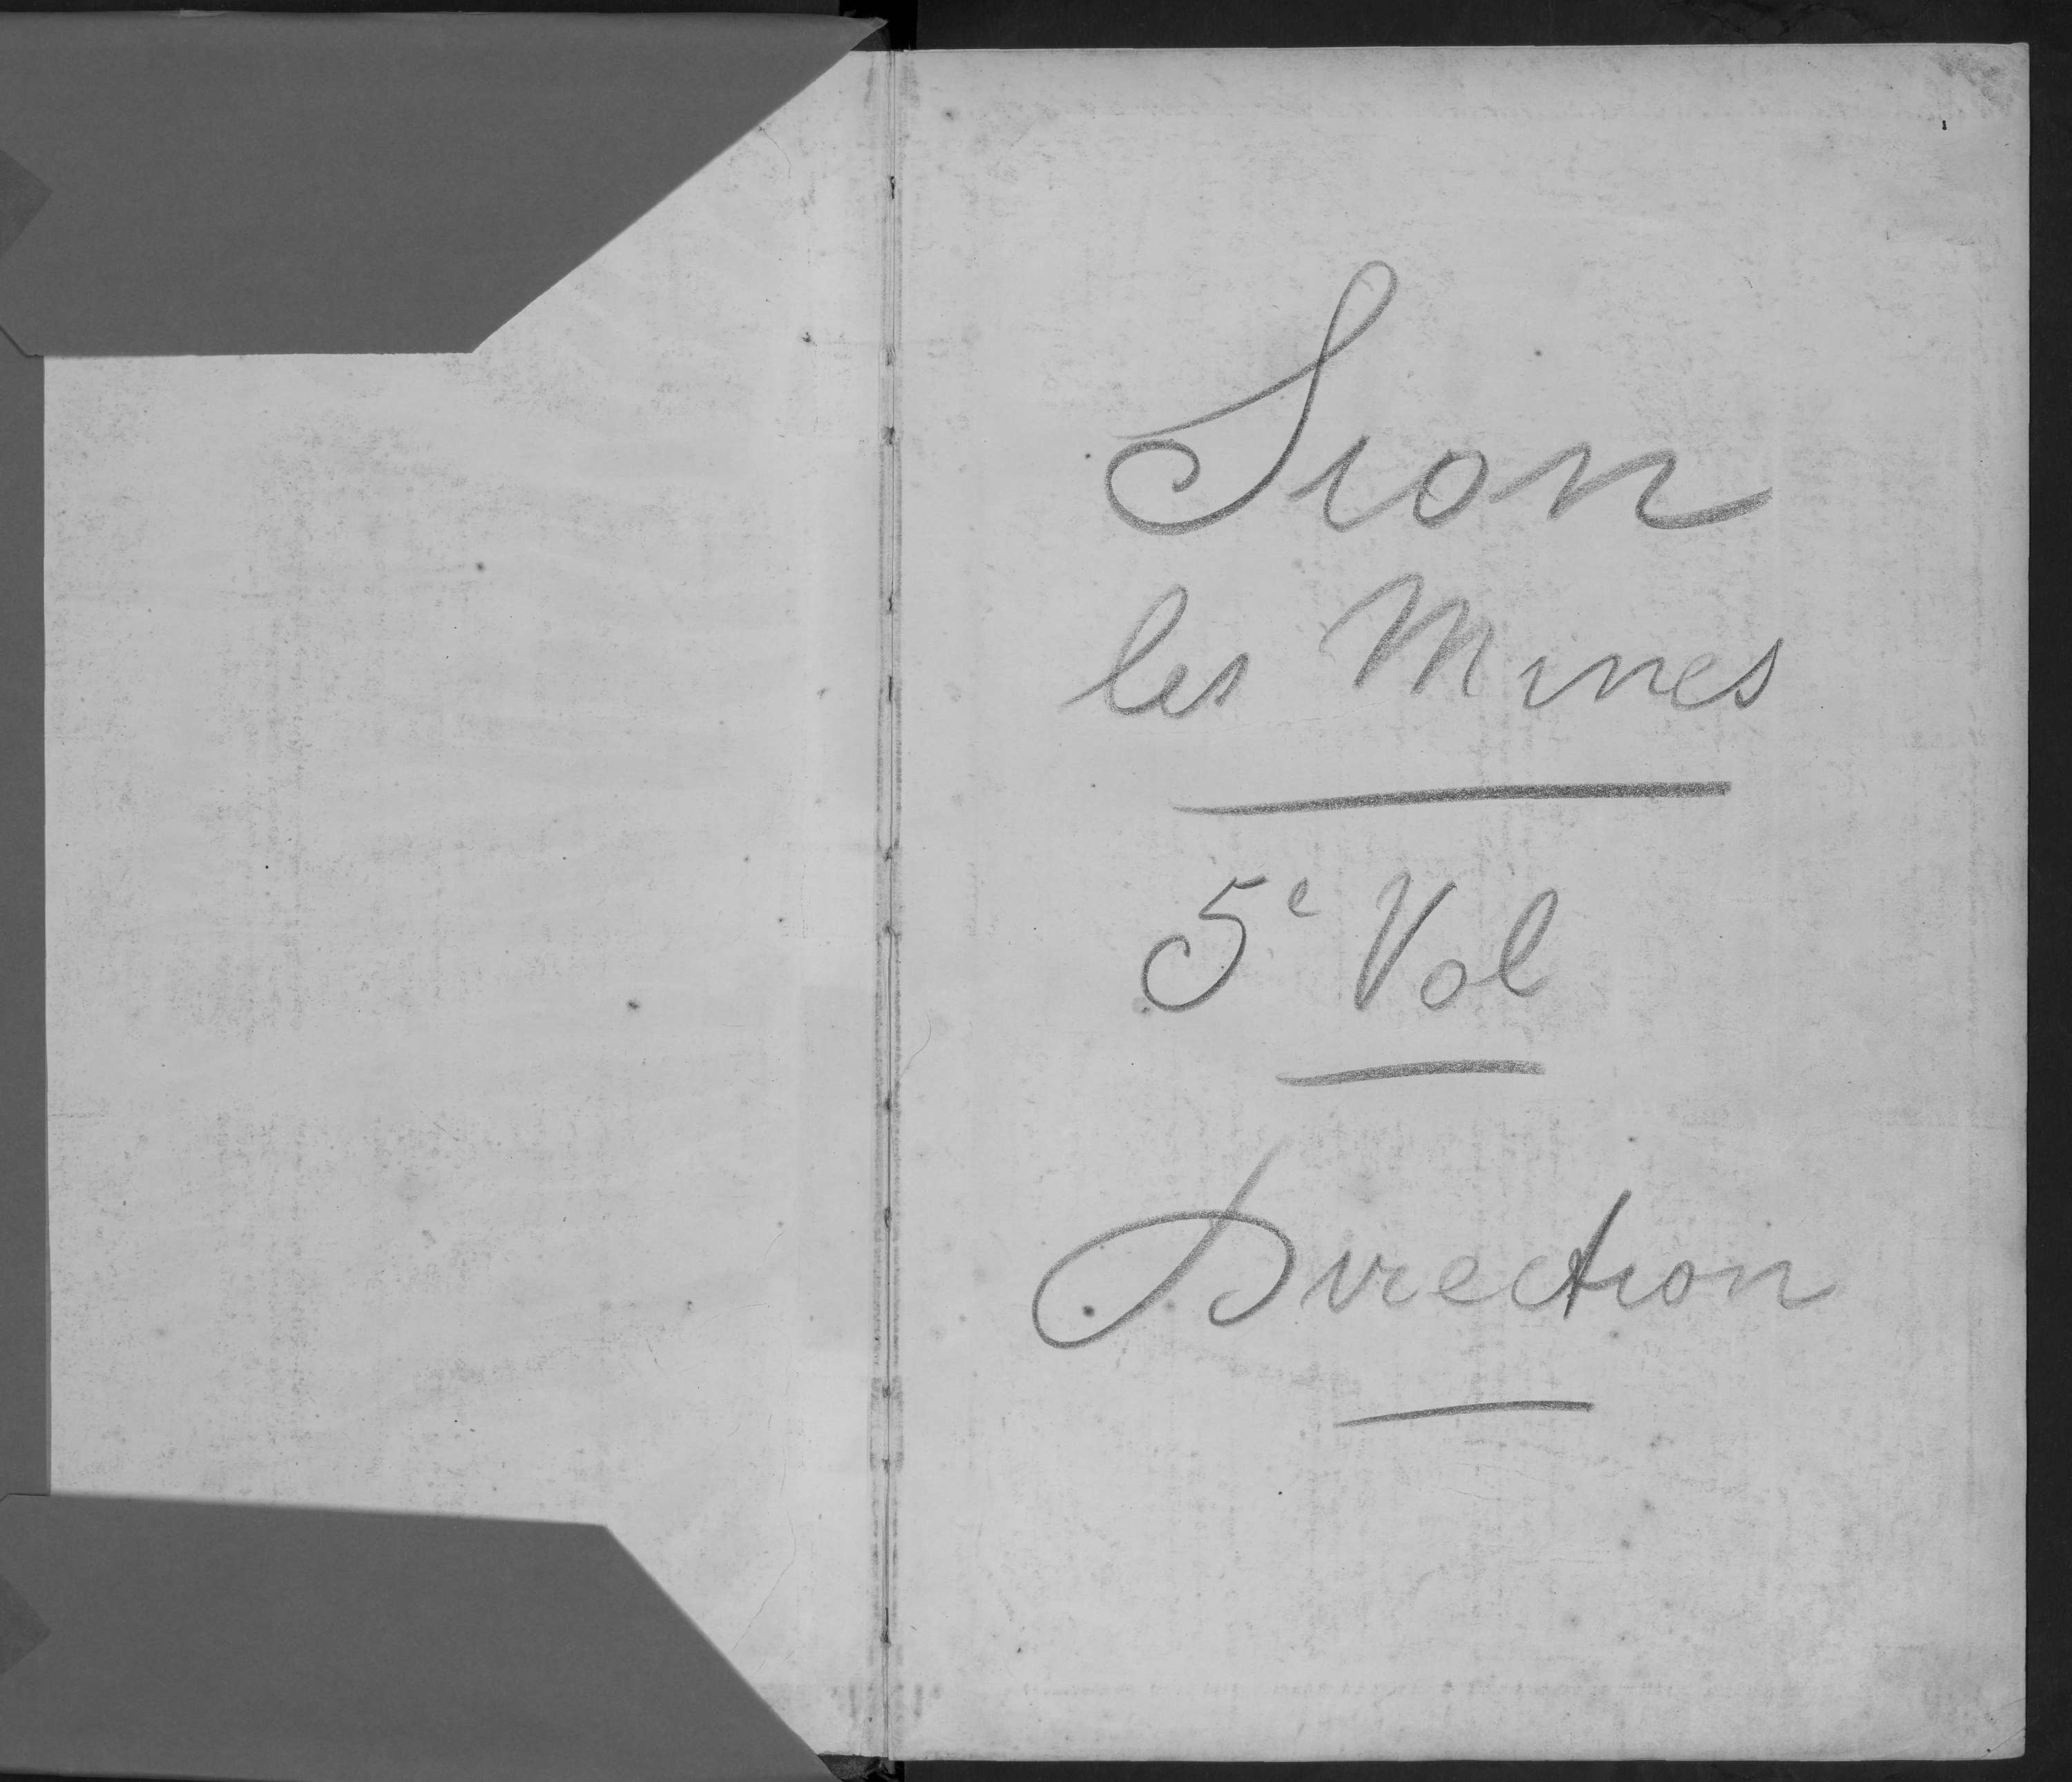 Sion
les Mines
5e Vol
Direction